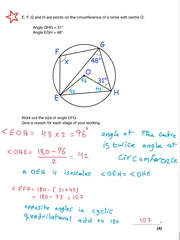 E, F, G and H are points on the circumference of a circle with centre O.
Angle OHG = 31°
Angle EGH = 48°
G
F
x
48°
O
31°
96
42
42
E
H
Work out the size of angle EFG.
Give a reason for each stage of your working.
< EOH = 48 x 2 = 96° angle at the centre
is twice angle at
circumference
< OHE = 180 - 96 = 42
2
△ OEH is isoscales < OEH = < OHE
< EFG = 180 - (31+42)
= 180 - 73 = 107
opposite angles in cyclic
quadrilateral add to 180
107
(4)